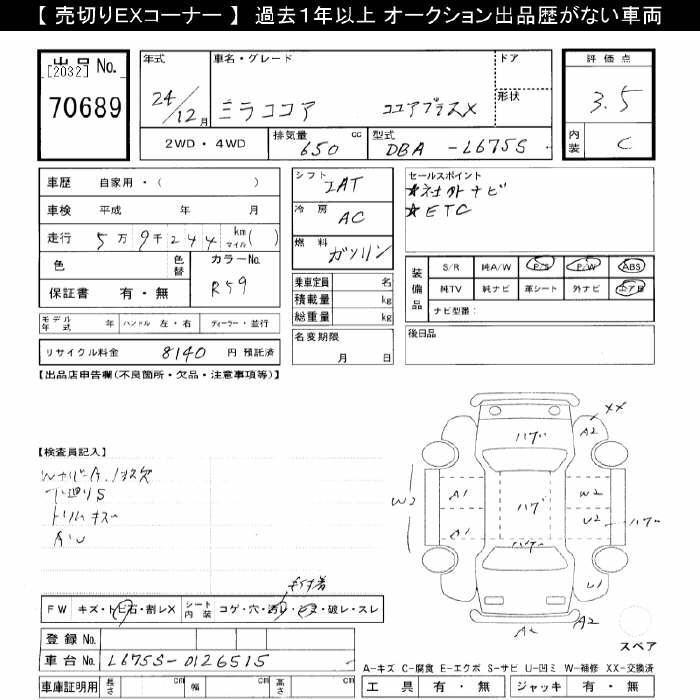 【 売切りEXコーナー 】 過去1年以上 オークション出品歴がない車両
出品 No.
[2032]
70689
年式
24/12月
車名・グレード
ミラココア ココアプラスX
ドア
形状
評価点
3.5
内装
C
2WD・4WD
排気量 650 cc
型式 DBA -L675S
車歴 自家用・( )
車検 平成 年 月
走行 5万9千244 km マイル ( )
色
色替
カラーNo. R59
保証書 有・無
シフト IAT
冷房 AC
燃料 ガソリン
乗車定員 名
積載量 kg
総重量 kg
セールスポイント
★社外ナビ
★ETC
装備品
S/R 純A/W P/S P/W ABS
純TV 純ナビ 革シート 外ナビ エアB
ナビ型番:
モデル年式 年 ハンドル 左・右 ディーラー・並行
リサイクル料金 8140 円 預託済
名変期限
月 日
後日品
【出品店申告欄(不良箇所・欠品・注意事項等)】
【検査員記入】
下廻りS
トリムキズ
AU
XX
A2
ハゲ
W2
A1 ハゲ W2
A1 U2 ハゲ
ハゲ
U1
A2 A2
スペア
FW キズ・トビ石・割レX
シート内装 コゲ・穴・汚レ・シミ・破レ・スレ
登録 No.
車台 No. L675S-0126515
車庫証明用 長さ cm 幅 cm 高さ cm
A-キズ C-腐食 E-エクボ S-サビ U-凹ミ W-補修 XX-交換済
工具 有・無 ジャッキ 有・無